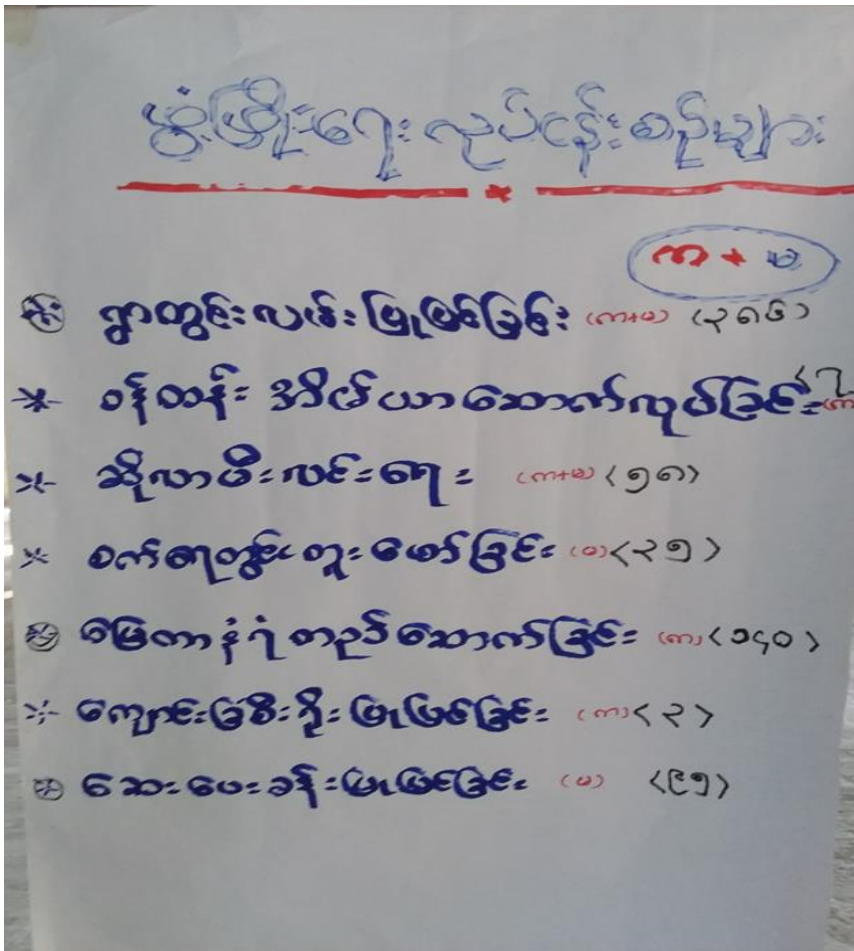 ဖွံ့ဖြိုးရေး လုပ်ငန်းစဉ်များ
ကာ + မ
ရွာတွင်းလမ်း ပြုပြင်ခြင်း (ကာ+မ) <၂၈၆>
ဝန်ထမ်း အိမ်ယာ ဆောက်လုပ်ခြင်း
ဆိုလာမီးလင်းရေး (ကာ+မ) <၅၈>
စက်ရေတွင်း တူးဖော်ခြင်း (မ) <၂၅>
မြေကာနံရံ တည်ဆောက်ခြင်း (ကာ) <၁၄၀>
ကျောင်းခြံစည်းရိုး ပြုပြင်ခြင်း (ကာ) <၂>
ဆေးပေးခန်း ပြုပြင်ခြင်း (မ) <၉၅>